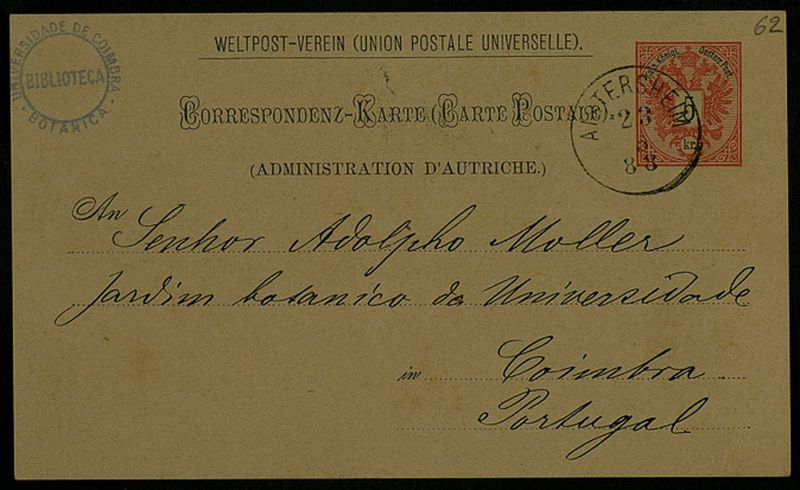 62
UNIVERSIDADE DE COIMBRA
BIBLIOTECA
BOTANICA
WELTPOST-VEREIN (UNION POSTALE UNIVERSELLE).
Kais. Königl. Oesterr. Post.
5
kr.
CORRESPONDENZ-KARTE (CARTE POSTALE).
23
88
(ADMINISTRATION D'AUTRICHE.)
An Senhor Adolpho Moller
Jardim botanico da Universidade
in Coimbra
Portugal